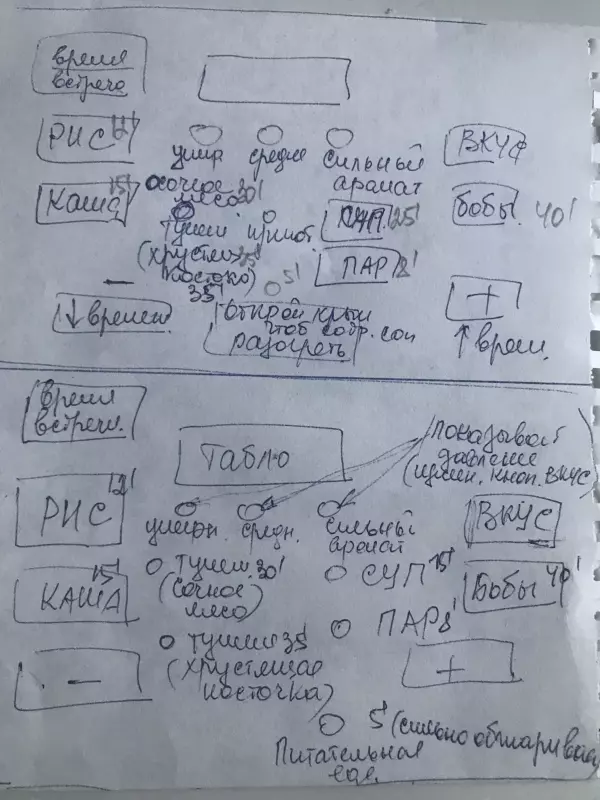 время
встречи
РИС 12'
умер средне сильный
аромат
ВКУС
Каша 15'
сочное
мясо 30'
бобы 40'
тушен
(хрустящ
косточ)
35'
25'
ПАР 8'
5'
−
+
↓ времен.
открой крыш
чтоб собр. сон
разогреть
↑ врем.
время
встречи.
Табло
показывают
давление
(измен. кноп. ВКУС)
РИС 12'
умерен. средн. сильный
аромат
ВКУС
КАША 15'
тушен. 30'
(сочное
мясо)
СУП 15'
Бобы 40'
−
тушен 35'
(хрустящая
косточка)
ПАР 8'
+
5' (сильно обжаривает
Питательная
еда